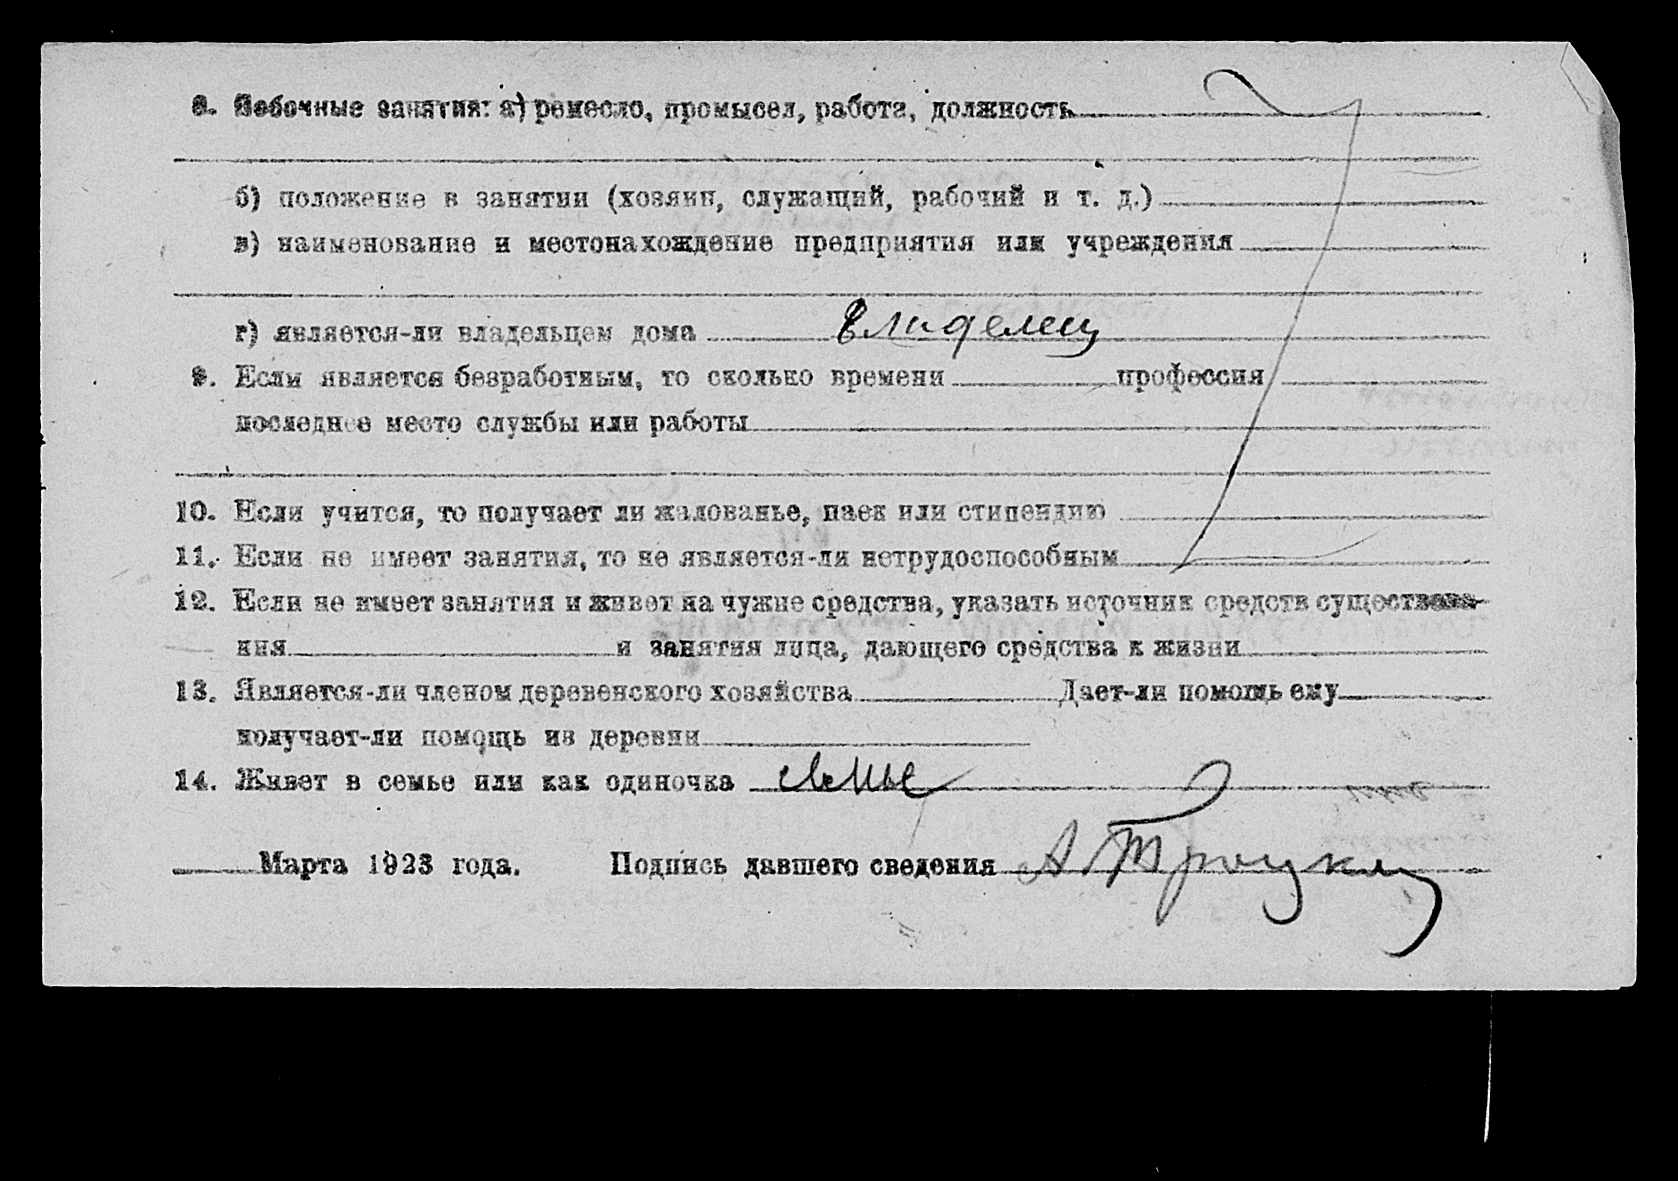 8. Побочные занятия: а) ремесло, промысел, работа, должность
б) положение в занятии (хозяин, служащий, рабочий и т. д.)
в) наименование и местонахождение предприятия или учреждения
г) является-ли владельцем дома владелец
9. Если является безработным, то сколько времени профессия
последнее место службы или работы
10. Если учится, то получает ли жалованье, паек или стипендию
11. Если не имеет занятия, то не является-ли нетрудоспособным
12. Если не имеет занятия и живет на чужие средства, указать источник средств существова-
ния и занятия лица, дающего средства к жизни
13. Является-ли членом деревенского хозяйства Дает-ли помощь ему
получает-ли помощь из деревни
14. Живет в семье или как одиночка семье
Марта 1923 года. Подпись давшего сведения А Троцкий